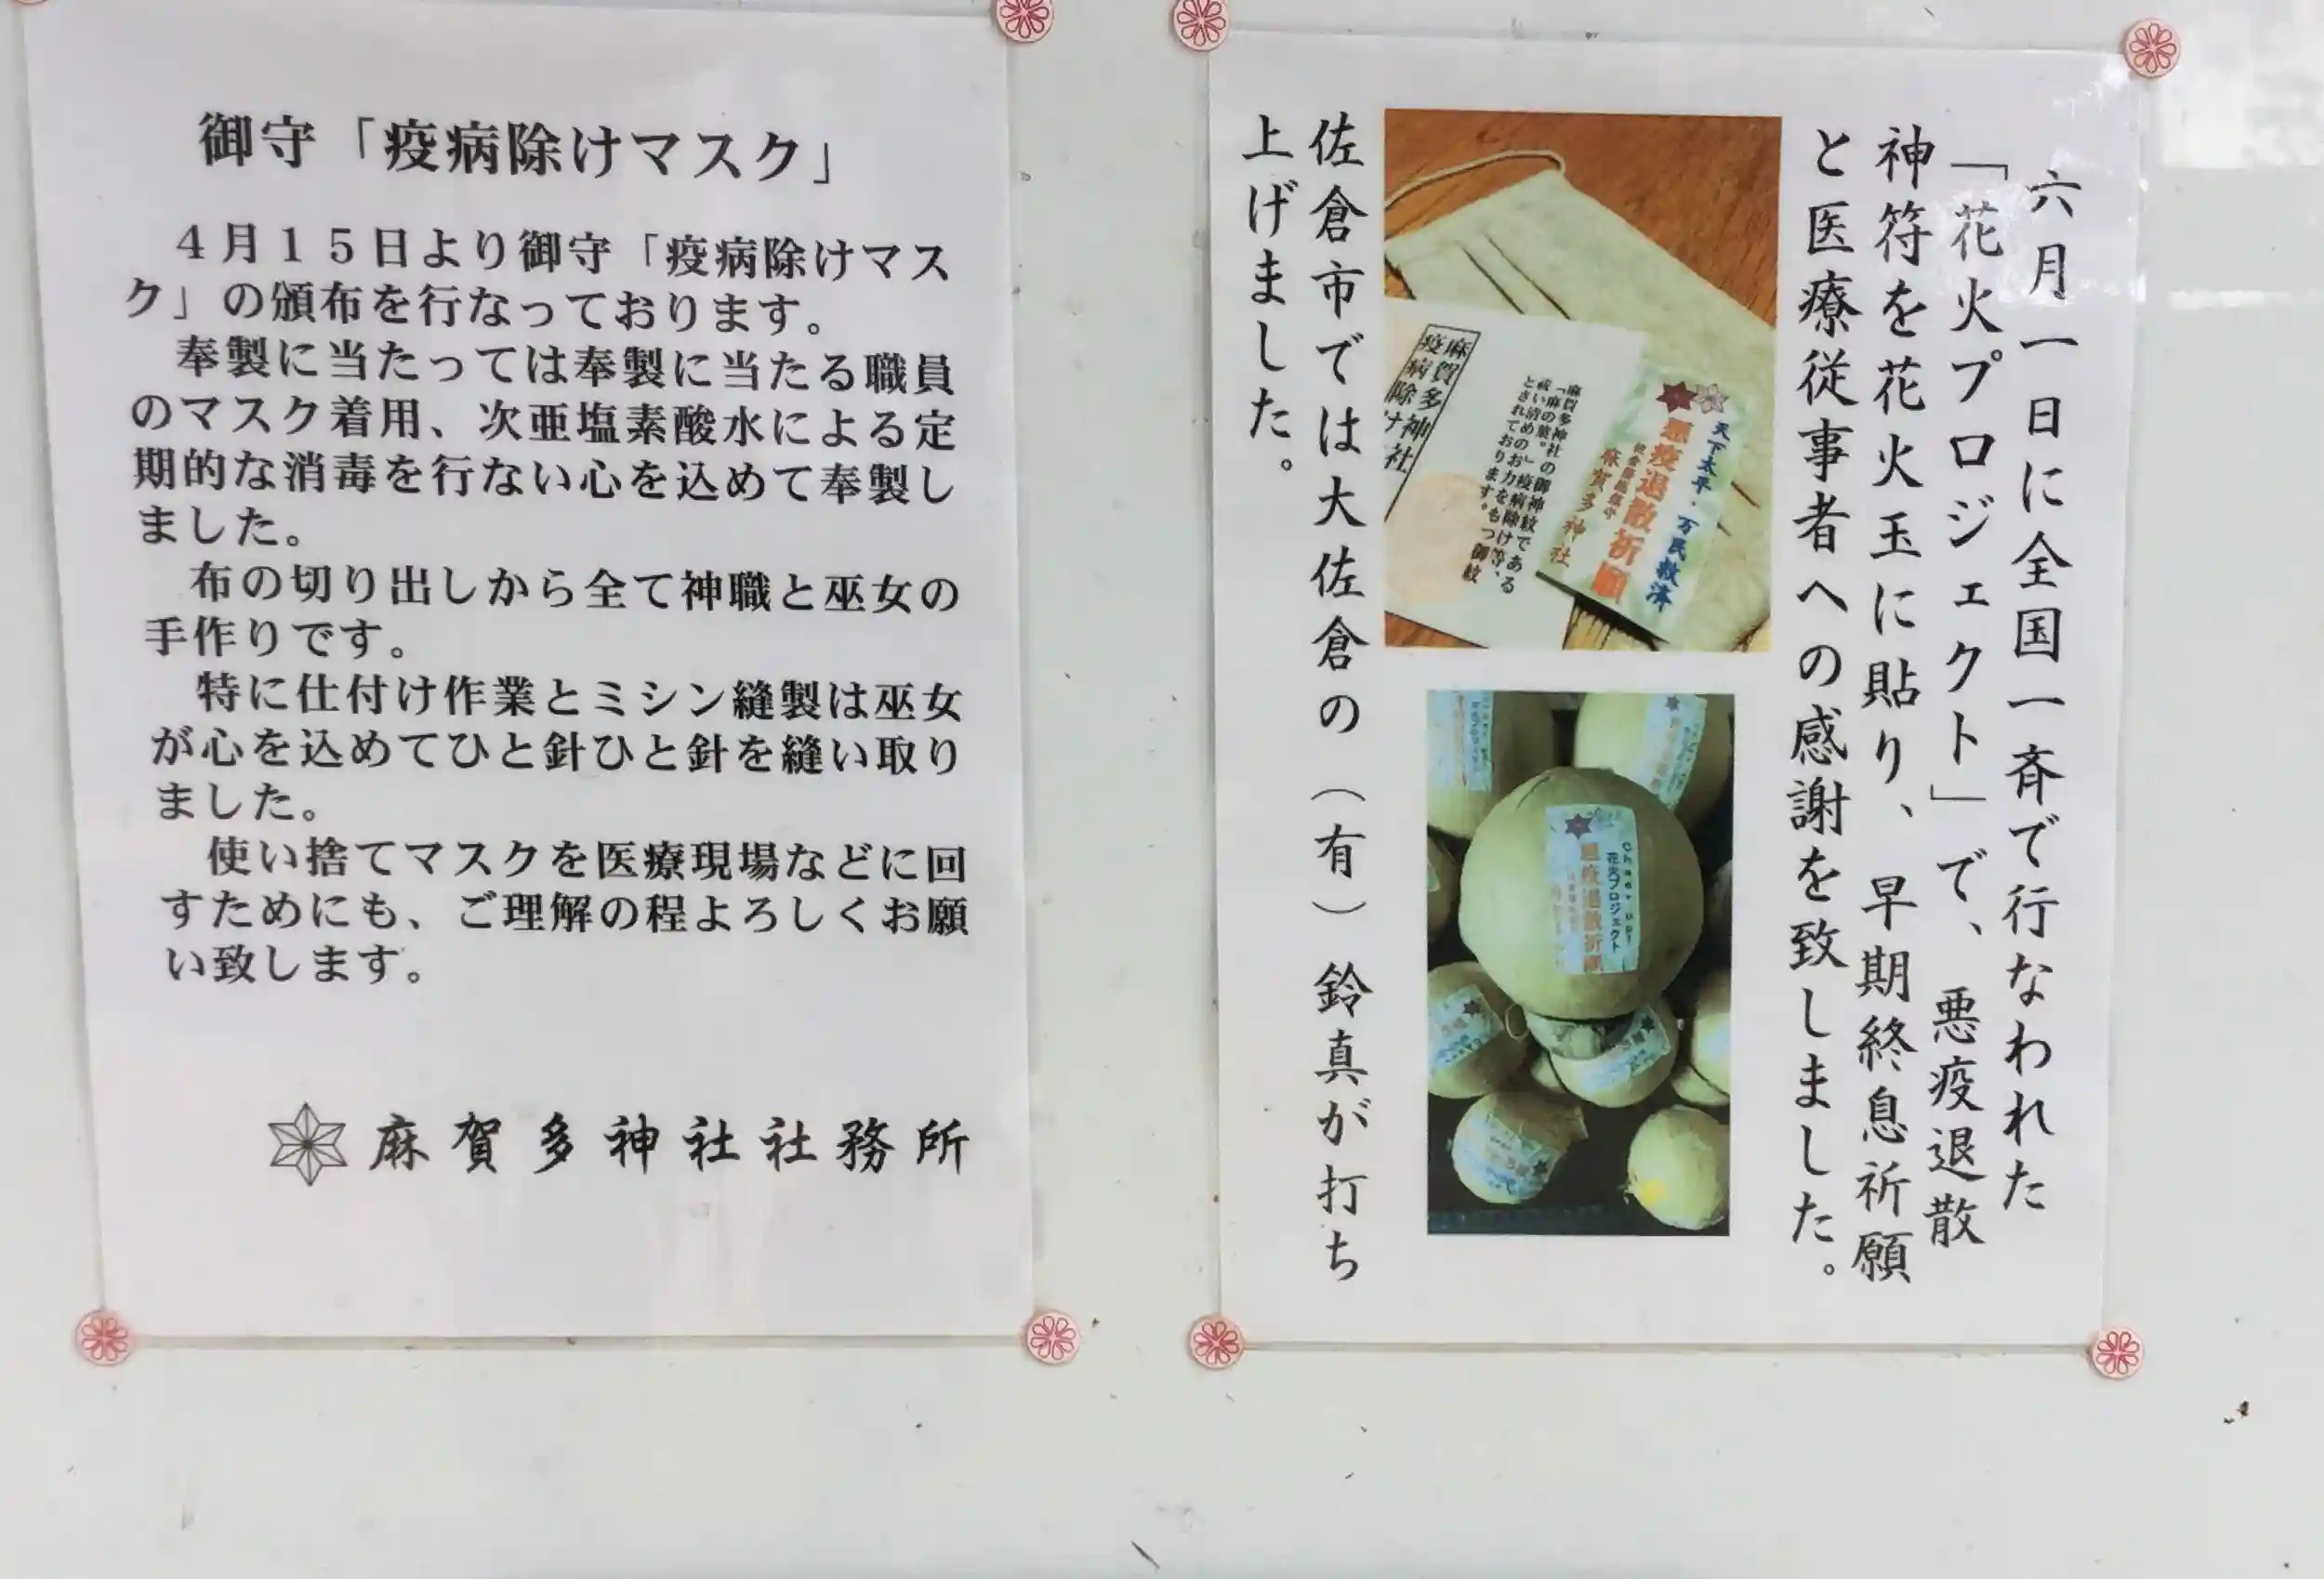 御守「疫病除けマスク」
４月１５日より御守「疫病除けマス
ク」の頒布を行なっております。
奉製に当たっては奉製に当たる職員
のマスク着用、次亜塩素酸水による定
期的な消毒を行ない心を込めて奉製し
ました。
布の切り出しから全て神職と巫女の
手作りです。
特に仕付け作業とミシン縫製は巫女
が心を込めてひと針ひと針を縫い取り
ました。
使い捨てマスクを医療現場などに回
すためにも、ご理解の程よろしくお願
い致します。
麻賀多神社社務所
六月一日に全国一斉で行なわれた
「花火プロジェクト」で、悪疫退散
神符を花火玉に貼り、早期終息祈願
と医療従事者への感謝を致しました。
天下太平・万民救済
悪疫退散祈願
麻賀多神社
麻賀多神社の御神紋である
「麻の葉。」疫病除け等、
祓い清めのお力をもつ御紋
とされております。
麻賀多神社
疫病除け
花火プロジェクト
悪疫退散祈願
佐倉市では大佐倉の（有）鈴真が打ち
上げました。